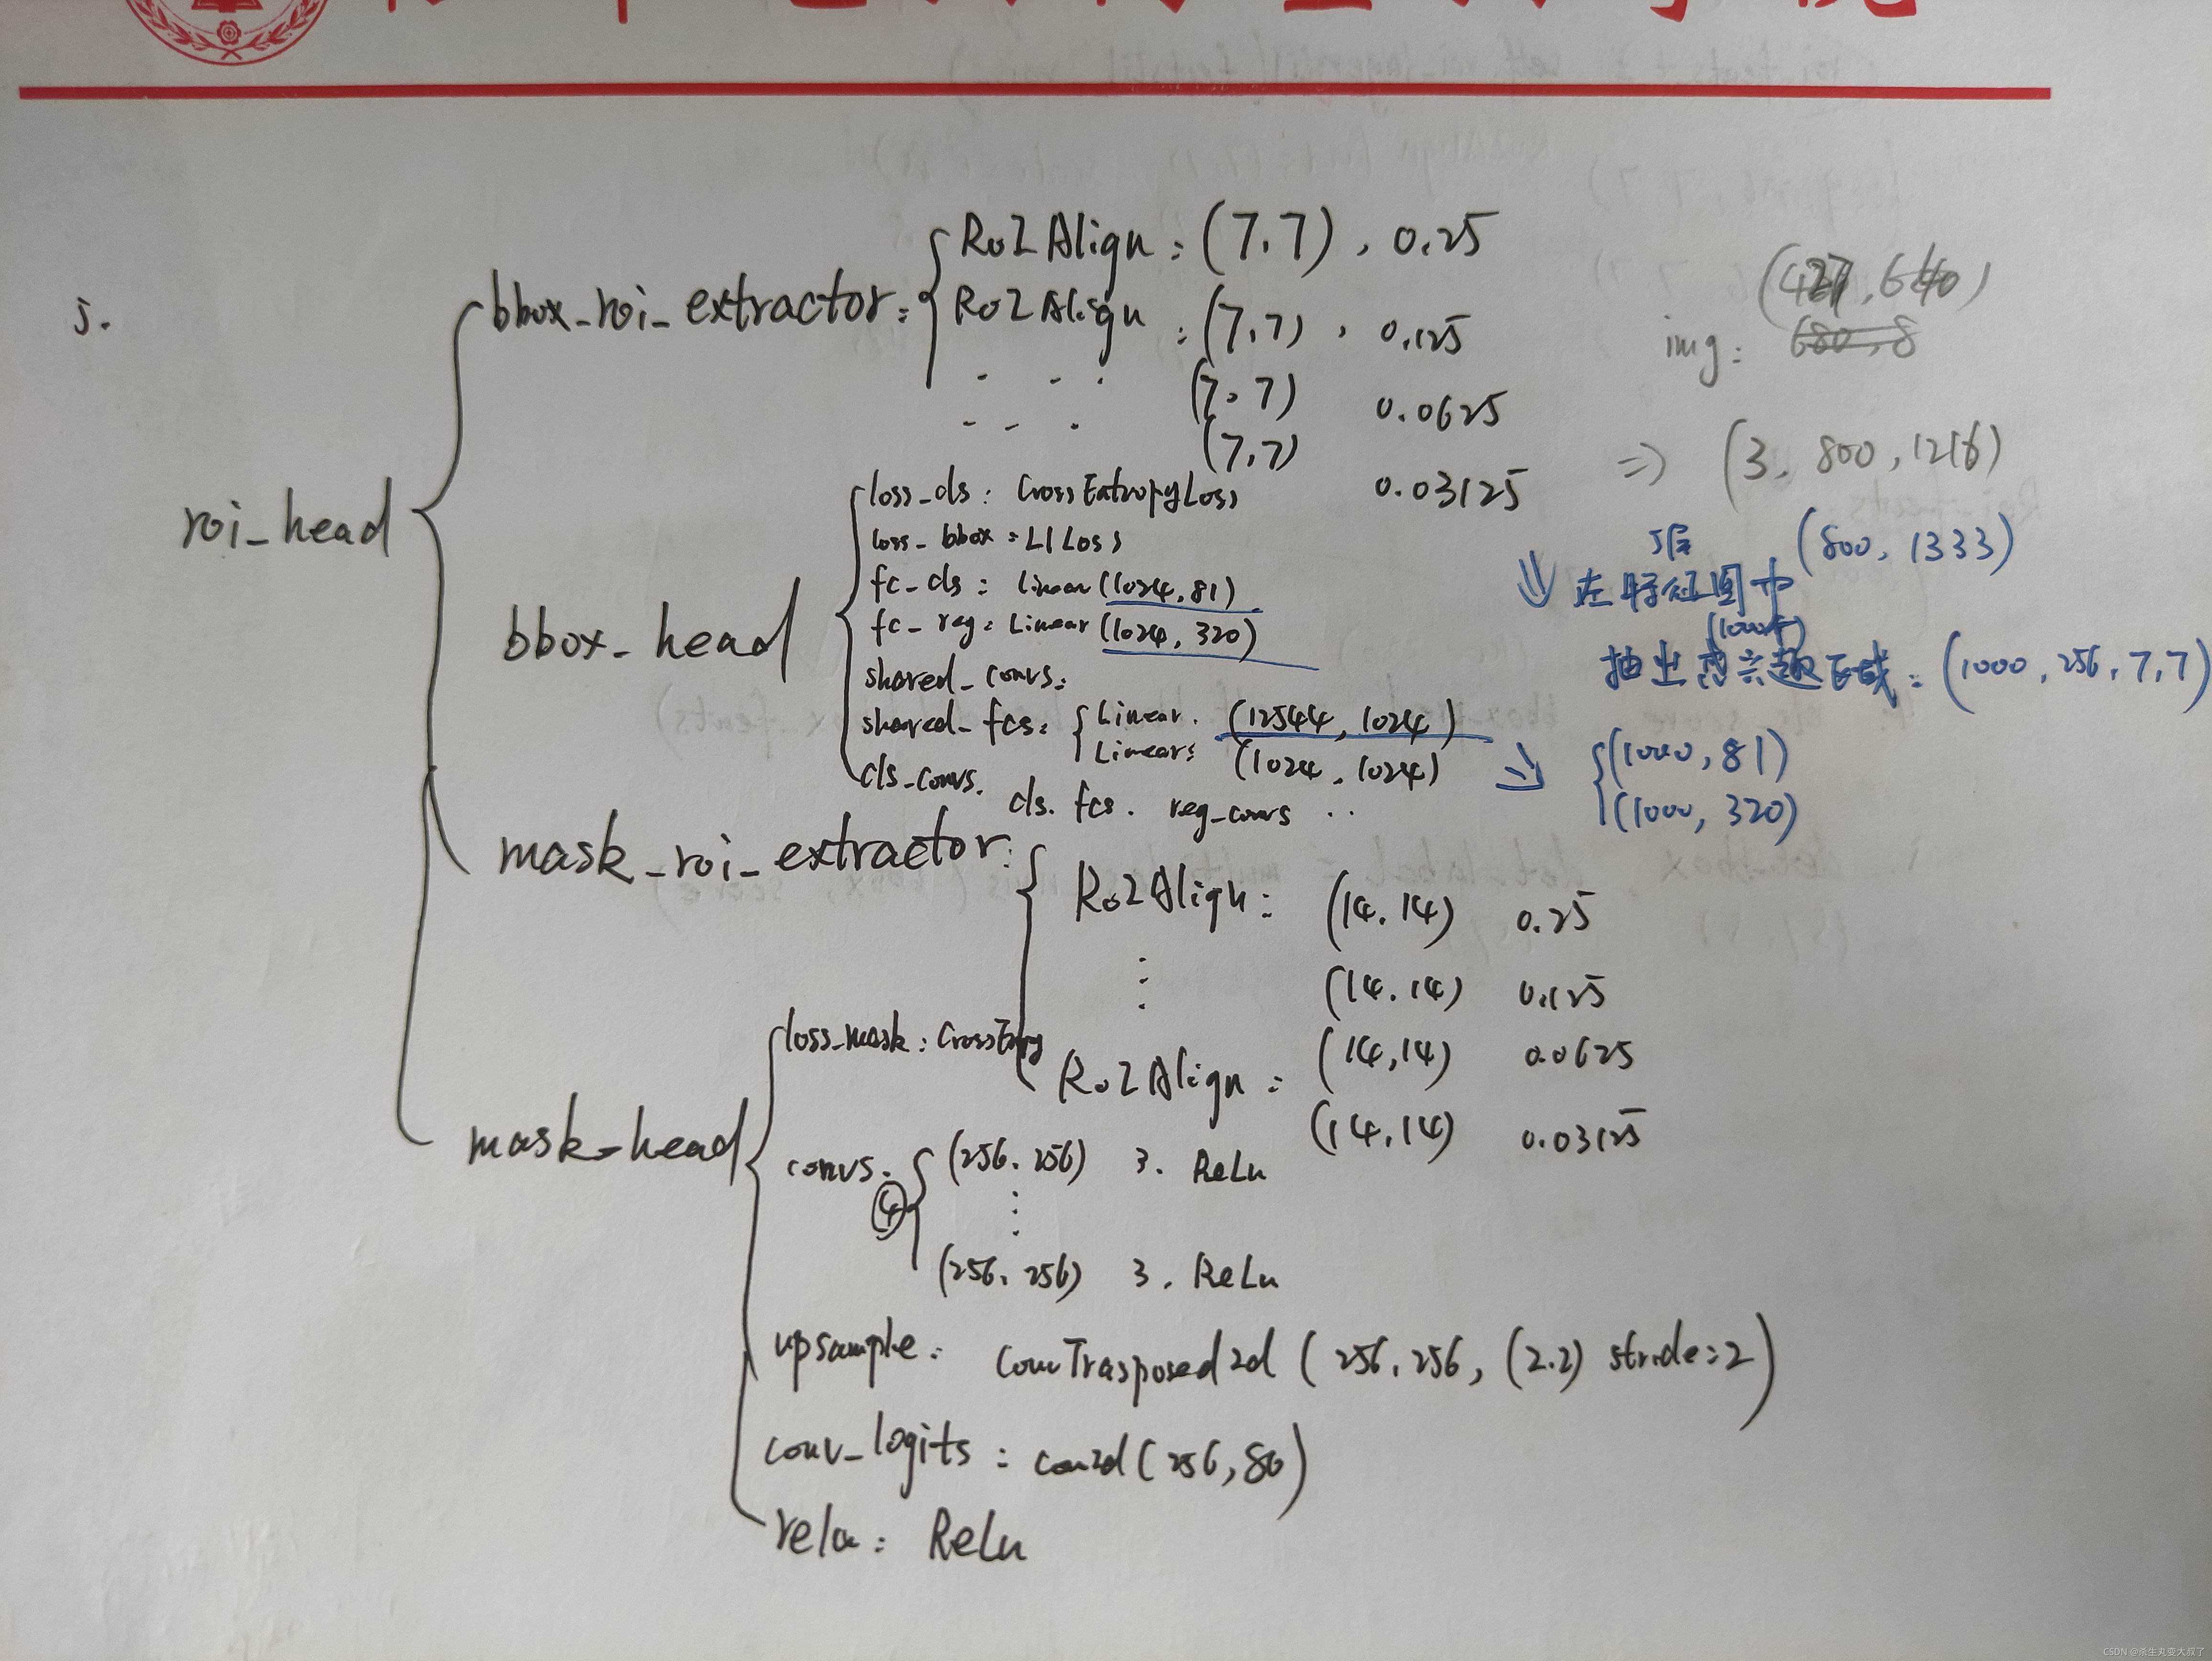 5.
roi_head
bbox_roi_extractor:
RoIAlign: (7,7), 0.25
RoIAlign: (7,7), 0.125
(7,7) 0.0625
(7,7) 0.03125
img: (427,640)
680,8
=> (3, 800, 1216)
(800, 1333)
5层
在特征图中
(1000个)
抽出感兴趣区域: (1000, 256, 7,7)
{(1000, 81)
(1000, 320)
bbox_head
loss_cls: CrossEntropyLoss
loss_bbox: L1Loss
fc_cls: Linear(1024,81)
fc_reg: Linear(1024, 320)
shared_convs:
shared_fcs: {Linear. (12544, 1024)
Linears: (1024, 1024)
cls_convs. cls. fcs. reg_convs ..
mask_roi_extractor:
RoIAlign: (14,14) 0.25
(14,14) 0.125
(14,14) 0.0625
RoIAlign:
(14,14) 0.03125
mask_head
loss_mask: CrossEntropy
convs. ④ (256, 256) 3. ReLu
(256, 256) 3. ReLu
upsample: ConvTrasposed2d (256, 256, (2.2) stride=2)
conv_logits: conv2d(256,80)
relu: ReLu
CSDN @杀生丸变大叔了